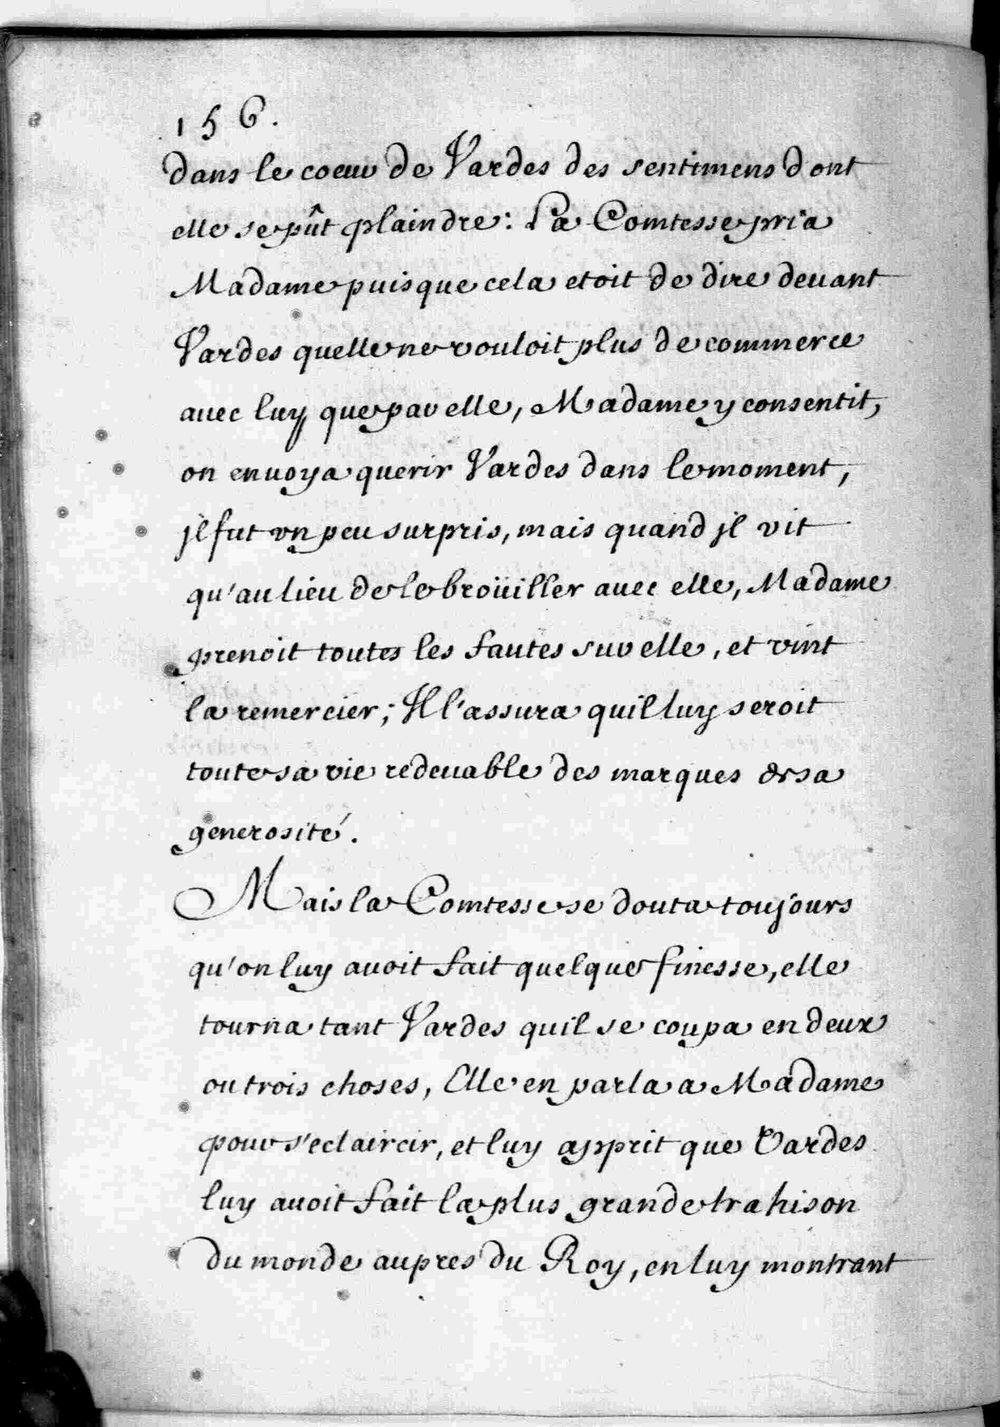 156.
dans le coeur de Vardes des sentimens dont
elle se pût plaindre: La Comtesse pria
Madame puisque cela etoit de dire deuant
Vardes quelle ne vouloit plus de commerce
auec luy que par elle, Madame y consentit,
on enuoya querir Vardes dans le moment,
jl fut vn peu surpris, mais quand jl vit
qu'au lieu de le broüiller auec elle, Madame
prenoit toutes les fautes sur elle, et vint
la remercier; Il l'assura quil luy seroit
toute sa vie redeuable des marques de sa
generosité.
Mais la Comtesse se douta toujours
qu'on luy auoit fait quelque finesse, elle
tourna tant Vardes quil se coupa en deux
ou trois choses, Elle en parla a Madame
pour s'eclaircir, et luy apprit que Vardes
luy auoit fait la plus grande trahison
du monde aupres du Roy, en luy montrant